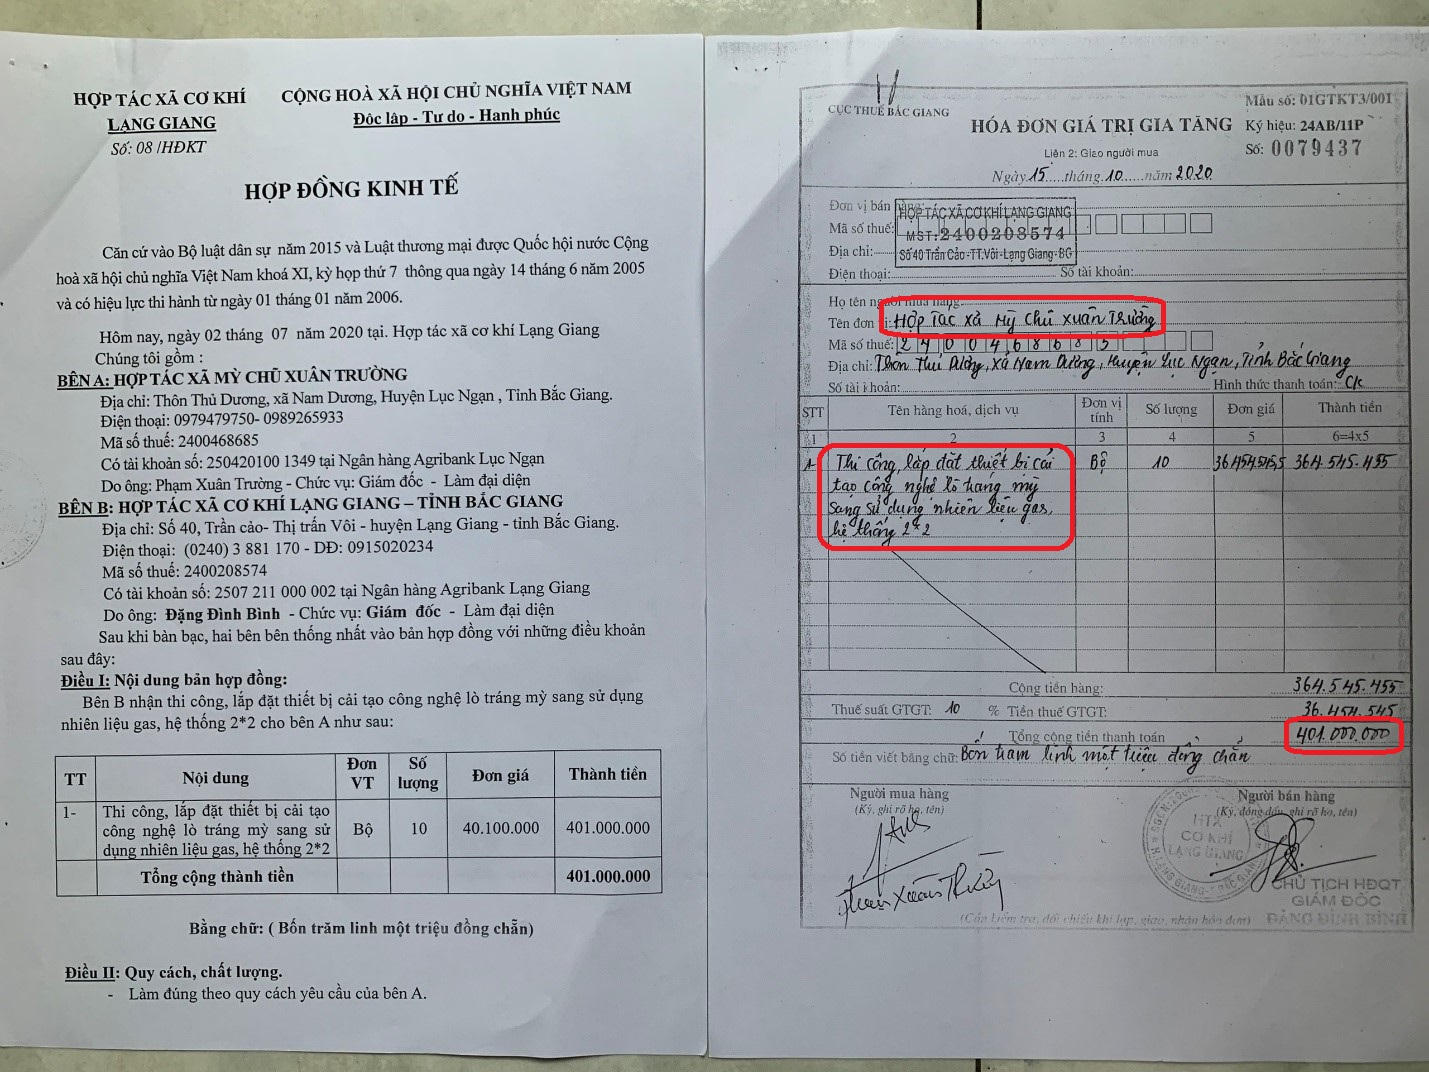 HỢP TÁC XÃ CƠ KHÍ
LẠNG GIANG
Số: 08 /HĐKT
CỘNG HOÀ XÃ HỘI CHỦ NGHĨA VIỆT NAM
Độc lập - Tự do - Hạnh phúc
HỢP ĐỒNG KINH TẾ
Căn cứ vào Bộ luật dân sự năm 2015 và Luật thương mại được Quốc hội nước Cộng
hoà xã hội chủ nghĩa Việt Nam khoá XI, kỳ họp thứ 7 thông qua ngày 14 tháng 6 năm 2005
và có hiệu lực thi hành từ ngày 01 tháng 01 năm 2006.
Hôm nay, ngày 02 tháng 07 năm 2020 tại. Hợp tác xã cơ khí Lạng Giang
Chúng tôi gồm :
BÊN A: HỢP TÁC XÃ MỲ CHŨ XUÂN TRƯỜNG
Địa chỉ: Thôn Thủ Dương, xã Nam Dương, Huyện Lục Ngạn , Tỉnh Bắc Giang.
Điện thoại: 0979479750- 0989265933
Mã số thuế: 2400468685
Có tài khoản số: 250420100 1349 tại Ngân hàng Agribank Lục Ngạn
Do ông: Phạm Xuân Trường - Chức vụ: Giám đốc - Làm đại diện
BÊN B: HỢP TÁC XÃ CƠ KHÍ LẠNG GIANG – TỈNH BẮC GIANG
Địa chỉ: Số 40, Trần cảo- Thị trấn Vôi - huyện Lạng Giang - tỉnh Bắc Giang.
Điện thoại: (0240) 3 881 170 - DĐ: 0915020234
Mã số thuế: 2400208574
Có tài khoản số: 2507 211 000 002 tại Ngân hàng Agribank Lạng Giang
Do ông: Đặng Đình Bình - Chức vụ: Giám đốc - Làm đại diện
Sau khi bàn bạc, hai bên bên thống nhất vào bản hợp đồng với những điều khoản
sau đây:
Điều I: Nội dung bản hợp đồng:
Bên B nhận thi công, lắp đặt thiết bị cải tạo công nghệ lò tráng mỳ sang sử dụng
nhiên liệu gas, hệ thống 2*2 cho bên A như sau:
TT Nội dung Đơn VT Số lượng Đơn giá Thành tiền
1- Thi công, lắp đặt thiết bị cải tạo
công nghệ lò tráng mỳ sang sử Bộ 10 40.100.000 401.000.000
dụng nhiên liệu gas, hệ thống 2*2
Tổng cộng thành tiền 401.000.000
Bằng chữ: ( Bốn trăm linh một triệu đồng chẵn)
Điều II: Quy cách, chất lượng.
- Làm đúng theo quy cách yêu cầu của bên A.
CỤC THUẾ BẮC GIANG
HÓA ĐƠN GIÁ TRỊ GIA TĂNG
Liên 2: Giao người mua
Ngày 15 tháng 10 năm 2020
Mẫu số: 01GTKT3/001
Ký hiệu: 24AB/11P
Số: 0079437
Đơn vị bán hàng:
Mã số thuế:
Địa chỉ:
Điện thoại: Số tài khoản:
HỢP TÁC XÃ CƠ KHÍ LẠNG GIANG
MST: 2400208574
Số 40 Trần Cảo -TT.Vôi-Lạng Giang-BG
Họ tên người mua hàng
Tên đơn vị: Hợp Tác Xã Mỳ Chũ Xuân Trường
Mã số thuế: 2400468685
Địa chỉ: Thôn Thủ Dương, Xã Nam Dương, Huyện Lục Ngạn, Tỉnh Bắc Giang
Số tài khoản: Hình thức thanh toán: CK
STT Tên hàng hoá, dịch vụ Đơn vị tính Số lượng Đơn giá Thành tiền
1 2 3 4 5 6=4x5
1 Thi công, lắp đặt thiết bị cải Bộ 10 36.454.545,5 364.545.455
tạo công nghệ lò tráng mỳ
sang sử dụng nhiên liệu gas,
hệ thống 2*2
Cộng tiền hàng: 364.545.455
Thuế suất GTGT: 10 % Tiền thuế GTGT: 36.454.545
Tổng cộng tiền thanh toán 401.000.000
Số tiền viết bằng chữ: Bốn trăm linh một triệu đồng chẵn
Người mua hàng
(Ký, ghi rõ họ, tên)
Phạm Xuân Trường
Người bán hàng
(Ký, đóng dấu, ghi rõ họ, tên)
HTX
CƠ KHÍ
LẠNG GIANG
CHỦ TỊCH HĐQT
GIÁM ĐỐC
ĐẶNG ĐÌNH BÌNH
(Cần kiểm tra, đối chiếu khi lập, giao, nhận hóa đơn)